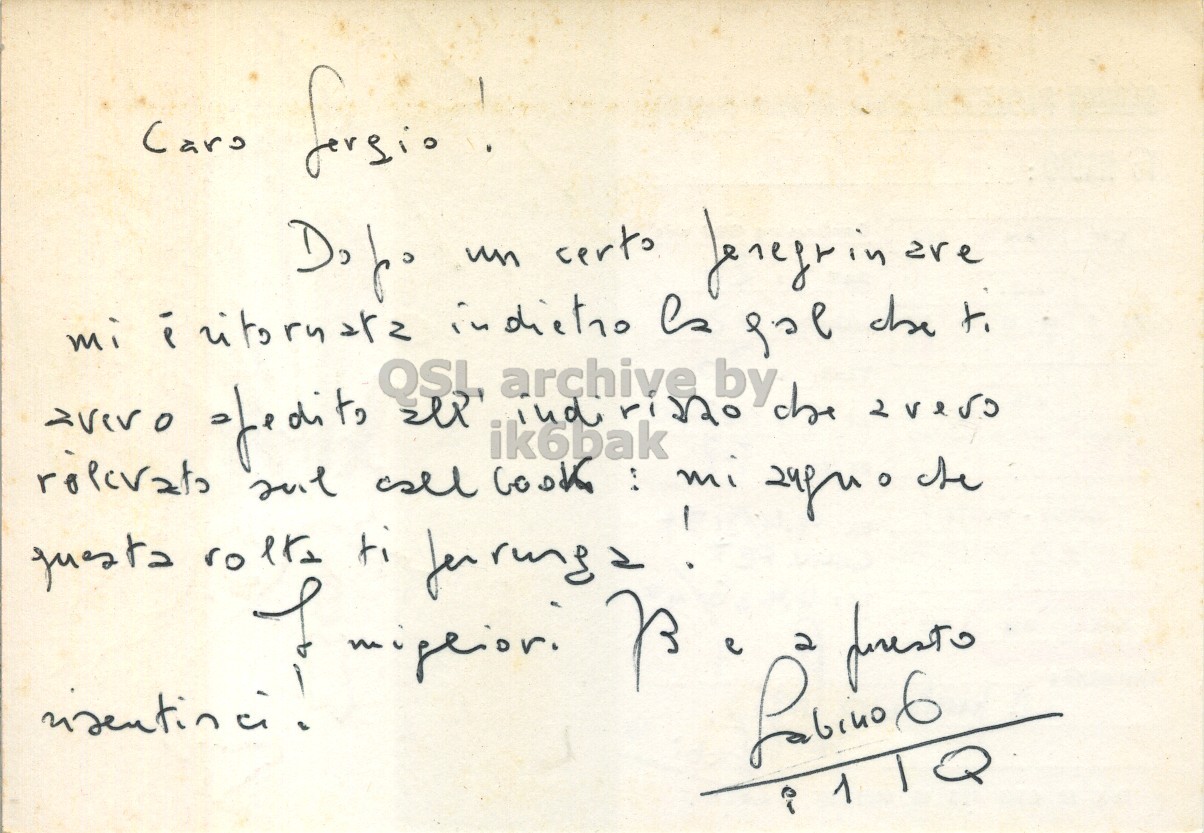 Caro Sergio!
Dopo un certo peregrinare
mi è ritornata indietro la qsl che ti
avevo spedito all'indirizzo che avevo
rilevato sul call book: mi auguro che
questa volta ti giunga!
I migliori 73 e a presto
risentirci!
Sabino
i1
QSL archive by
ik6bak